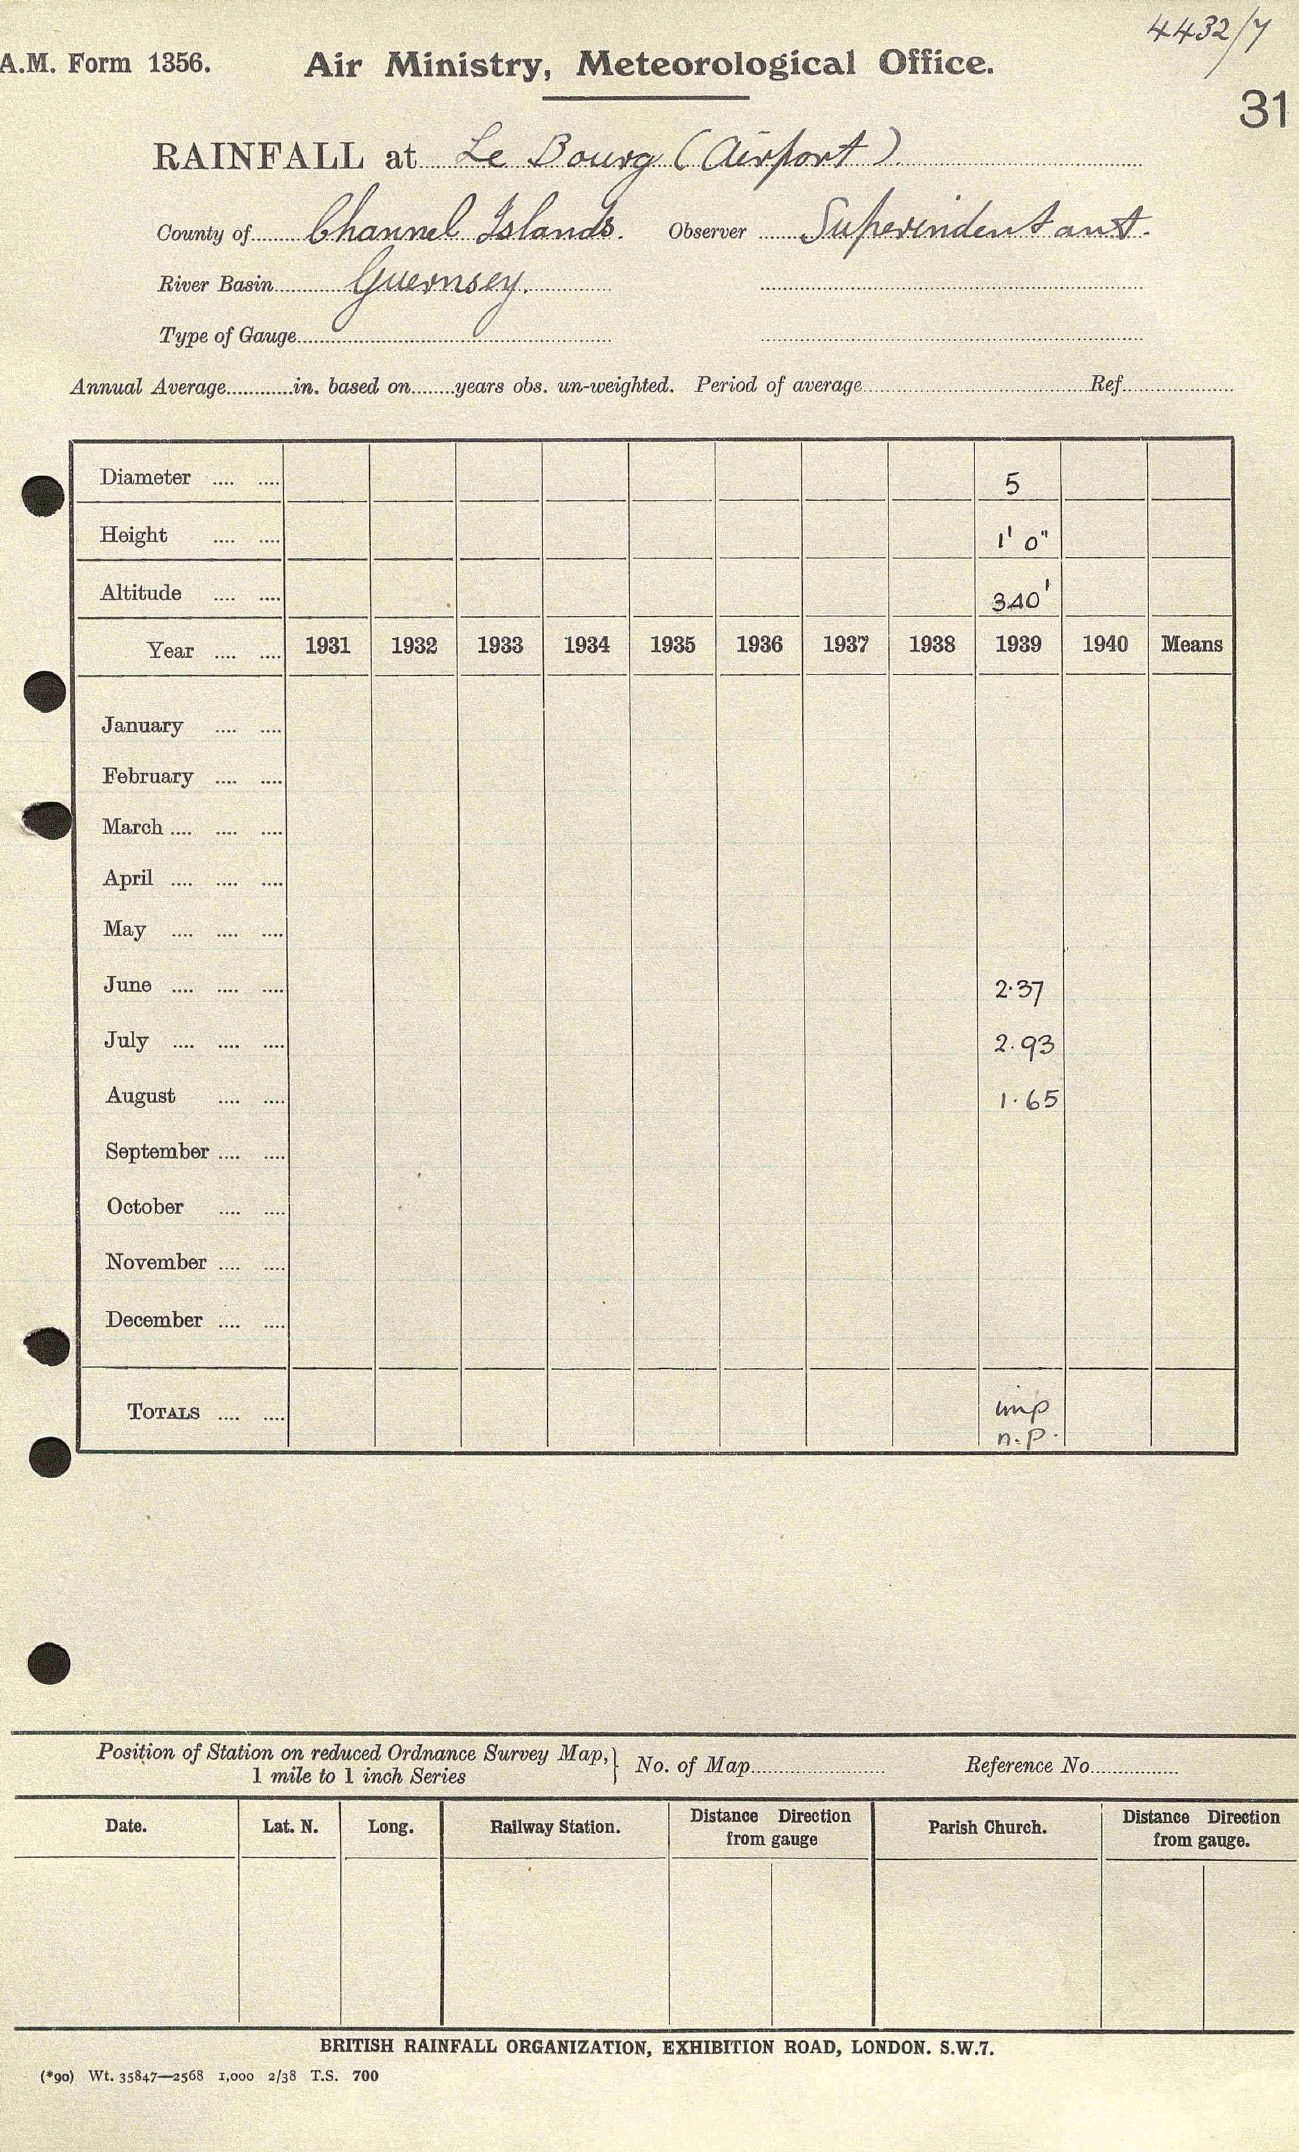 4432/7
A.M. Form 1356. Air Ministry, Meteorological Office.
31
RAINFALL at Le Bourg (Airport).
County of Channel Islands. Observer Superindentant.
River Basin Guernsey.
Type of Gauge
Annual Average in. based on years obs. un-weighted. Period of average Ref.
Diameter .... .... 5
Height .... .... 1' 0"
Altitude .... .... 340'
Year .... .... 1931 1932 1933 1934 1935 1936 1937 1938 1939 1940 Means
January .... ....
February .... ....
March .... .... ....
April .... .... ....
May .... .... ....
June .... .... .... 2.37
July .... .... .... 2.93
August .... .... 1.65
September .... ....
October .... ....
November .... ....
December .... ....
TOTALS .... .... imp
n.p.
Position of Station on reduced Ordnance Survey Map,} No. of Map Reference No
1 mile to 1 inch Series
Date. Lat. N. Long. Railway Station. Distance Direction Parish Church. Distance Direction
from gauge from gauge.
BRITISH RAINFALL ORGANIZATION, EXHIBITION ROAD, LONDON. S.W.7.
(*90) Wt. 35847—2568 1,000 2/38 T.S. 700